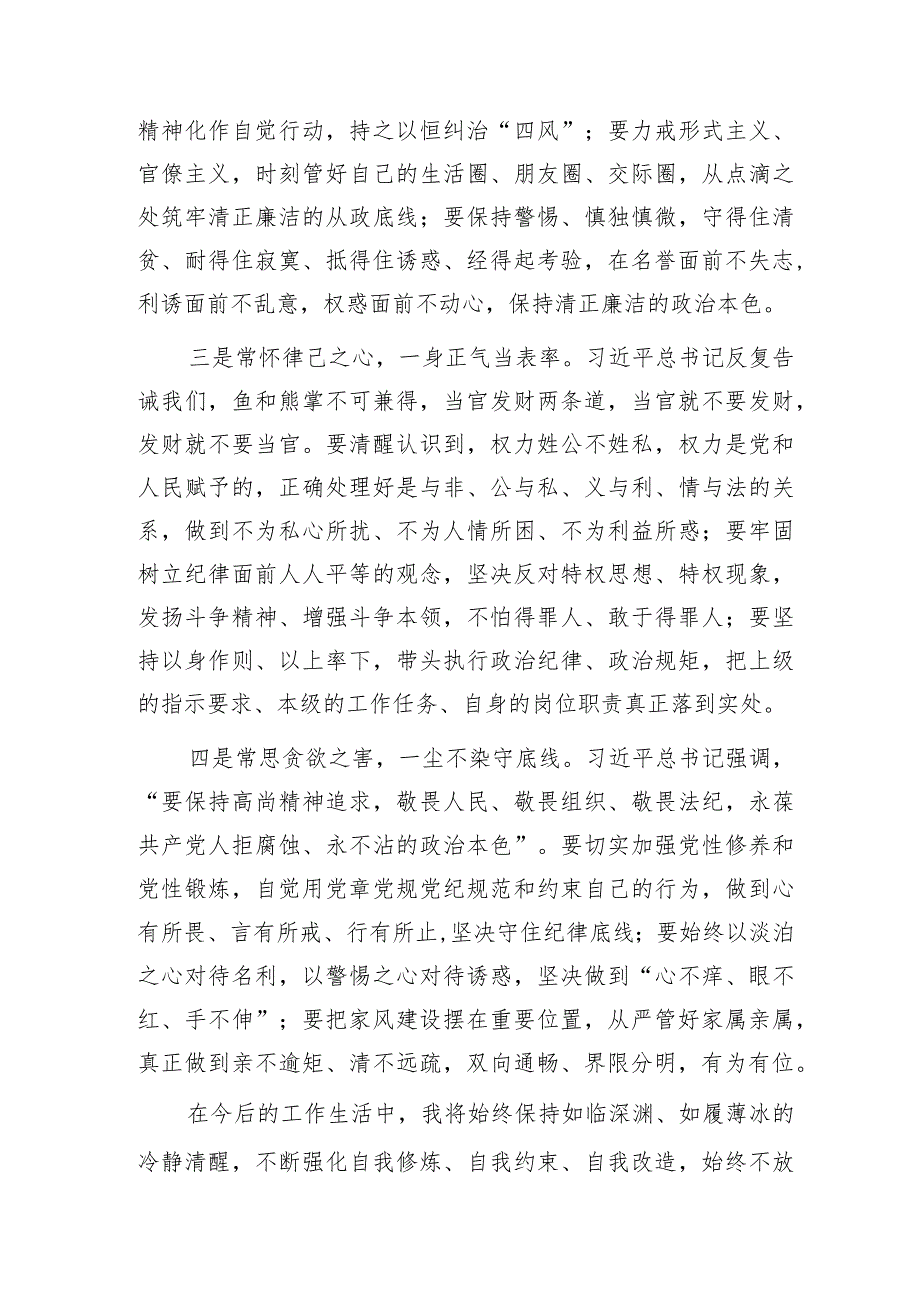 精神化作自觉行动，持之以恒纠治“四风”；要力戒形式主义、
官僚主义，时刻管好自己的生活圈、朋友圈、交际圈，从点滴之
处筑牢清正廉洁的从政底线；要保持警惕、慎独慎微，守得住清
贫、耐得住寂寞、抵得住诱惑、经得起考验，在名誉面前不失志，
利诱面前不乱意，权惑面前不动心，保持清正廉洁的政治本色。
三是常怀律己之心，一身正气当表率。习近平总书记反复告
诫我们，鱼和熊掌不可兼得，当官发财两条道，当官就不要发财，
发财就不要当官。要清醒认识到，权力姓公不姓私，权力是党和
人民赋予的，正确处理好是与非、公与私、义与利、情与法的关
系，做到不为私心所扰、不为人情所困、不为利益所惑；要牢固
树立纪律面前人人平等的观念，坚决反对特权思想、特权现象，
发扬斗争精神、增强斗争本领，不怕得罪人、敢于得罪人；要坚
持以身作则、以上率下，带头执行政治纪律、政治规矩，把上级
的指示要求、本级的工作任务、自身的岗位职责真正落到实处。
四是常思贪欲之害，一尘不染守底线。习近平总书记强调，
“要保持高尚精神追求，敬畏人民、敬畏组织、敬畏法纪，永葆
共产党人拒腐蚀、永不沾的政治本色”。要切实加强党性修养和
党性锻炼，自觉用党章党规党纪规范和约束自己的行为，做到心
有所畏、言有所戒、行有所止,坚决守住纪律底线；要始终以淡泊
之心对待名利，以警惕之心对待诱惑，坚决做到“心不痒、眼不
红、手不伸”；要把家风建设摆在重要位置，从严管好家属亲属，
真正做到亲不逾矩、清不远疏，双向通畅、界限分明，有为有位。
在今后的工作生活中，我将始终保持如临深渊、如履薄冰的
冷静清醒，不断强化自我修炼、自我约束、自我改造，始终不放